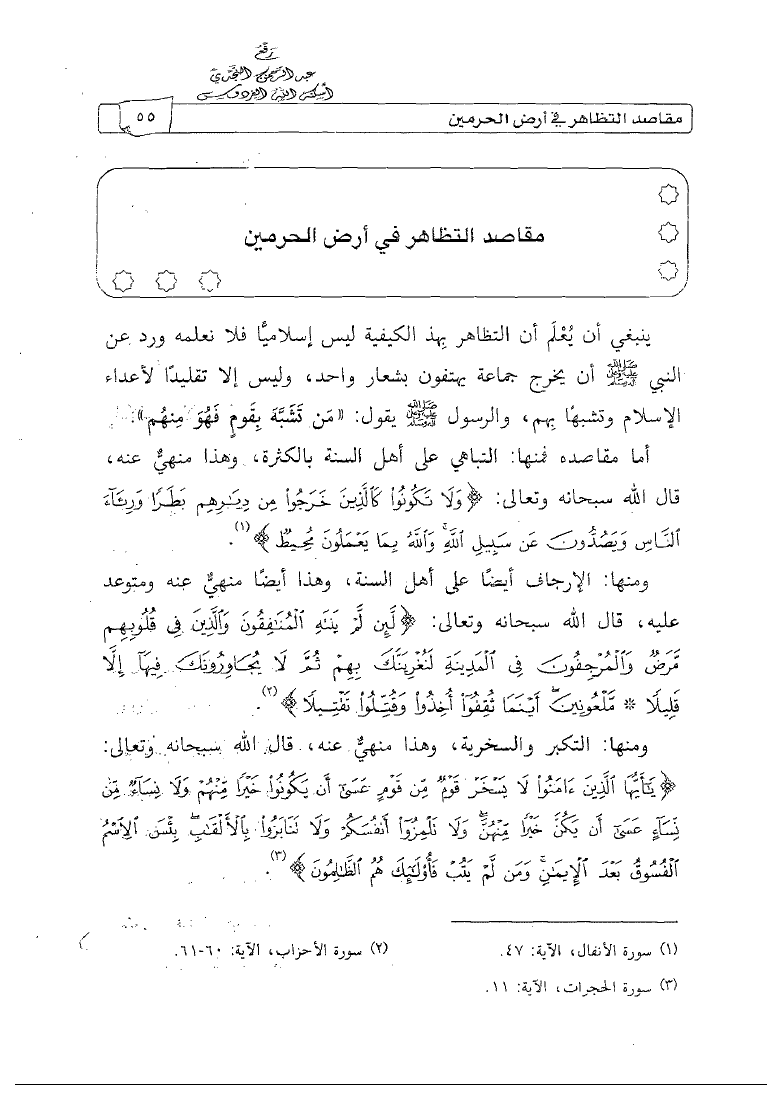 رَفْعُ
عبد الرحمن النجدي
أسكنه الله الفردوس
مقاصد التظاهر في أرض الحرمين
٥٥
مقاصد التظاهر في أرض الحرمين
ينبغي أن يُعْلَم أن التظاهر بهذ الكيفية ليس إسلاميًّا فلا نعلمه ورد عن
النبي ﷺ أن يخرج جماعة يهتفون بشعار واحد، وليس إلا تقليدًا لأعداء
الإسلام وتشبهًا بهم، والرسول ﷺ يقول: «مَن تَشَبَّهَ بِقَومٍ فَهُوَ مِنهُم».
أما مقاصده فمنها: التباهي على أهل السنة بالكثرة، وهذا منهيٌّ عنه،
قال الله سبحانه وتعالى: ﴿وَلَا تَكُونُوا۟ كَٱلَّذِينَ خَرَجُوا۟ مِن دِيَـٰرِهِم بَطَرًا وَرِئَآءَ
ٱلنَّاسِ وَيَصُدُّونَ عَن سَبِيلِ ٱللَّهِ ۚ وَٱللَّهُ بِمَا يَعْمَلُونَ مُحِيطٌ﴾(١).
ومنها: الإرجاف أيضًا على أهل السنة، وهذا أيضًا منهيٌّ عنه ومتوعد
عليه، قال الله سبحانه وتعالى: ﴿لَّئِن لَّمْ يَنتَهِ ٱلْمُنَـٰفِقُونَ وَٱلَّذِينَ فِى قُلُوبِهِم
مَّرَضٌ وَٱلْمُرْجِفُونَ فِى ٱلْمَدِينَةِ لَنُغْرِيَنَّكَ بِهِمْ ثُمَّ لَا يُجَاوِرُونَكَ فِيهَآ إِلَّا
قَلِيلًا * مَّلْعُونِينَ ۖ أَيْنَمَا ثُقِفُوٓا۟ أُخِذُوا۟ وَقُتِّلُوا۟ تَقْتِيلًا﴾(٢).
ومنها: التكبر والسخرية، وهذا منهيٌّ عنه، قال الله سبحانه وتعالى:
﴿يَـٰٓأَيُّهَا ٱلَّذِينَ ءَامَنُوا۟ لَا يَسْخَرْ قَوْمٌ مِّن قَوْمٍ عَسَىٰٓ أَن يَكُونُوا۟ خَيْرًا مِّنْهُمْ وَلَا نِسَآءٌ مِّن
نِّسَآءٍ عَسَىٰٓ أَن يَكُنَّ خَيْرًا مِّنْهُنَّ ۖ وَلَا تَلْمِزُوٓا۟ أَنفُسَكُمْ وَلَا تَنَابَزُوا۟ بِٱلْأَلْقَـٰبِ ۖ بِئْسَ ٱلِٱسْمُ
ٱلْفُسُوقُ بَعْدَ ٱلْإِيمَـٰنِ ۚ وَمَن لَّمْ يَتُبْ فَأُو۟لَـٰٓئِكَ هُمُ ٱلظَّـٰلِمُونَ﴾(٣).
(١) سورة الأنفال، الآية: ٤٧.
(٢) سورة الأحزاب، الآية: ٦٠-٦١.
(٣) سورة الحجرات، الآية: ١١.